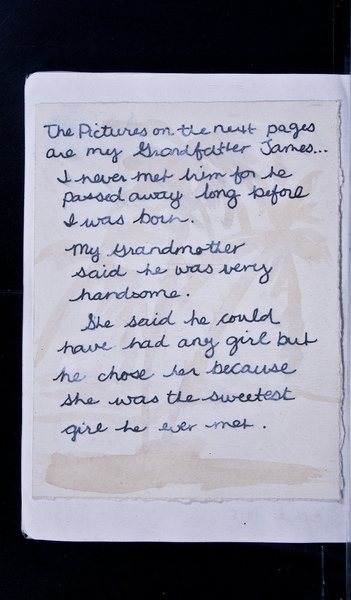 The Pictures on the next pages
are my Grandfather James...
I never met him for he
passed away long before
I was born.
My Grandmother
said he was very
handsome.
She said he could
have had any girl but
he chose her because
she was the sweetest
girl he ever met.